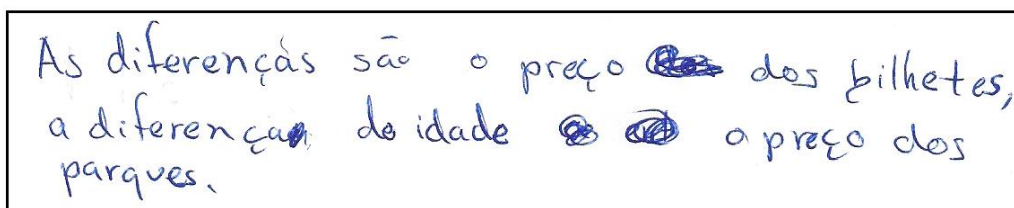 As diferenças são o preço dos bilhetes,
a diferença de idade o preço dos
parques.